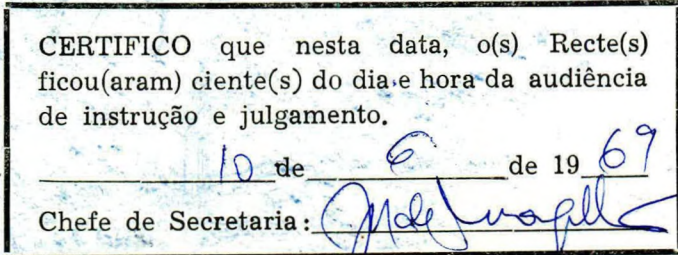 CERTIFICO que nesta data, o(s) Recte(s)
ficou(aram) ciente(s) do dia e hora da audiência
de instrução e julgamento.
10 de 6 de 19 69
Chefe de Secretaria: